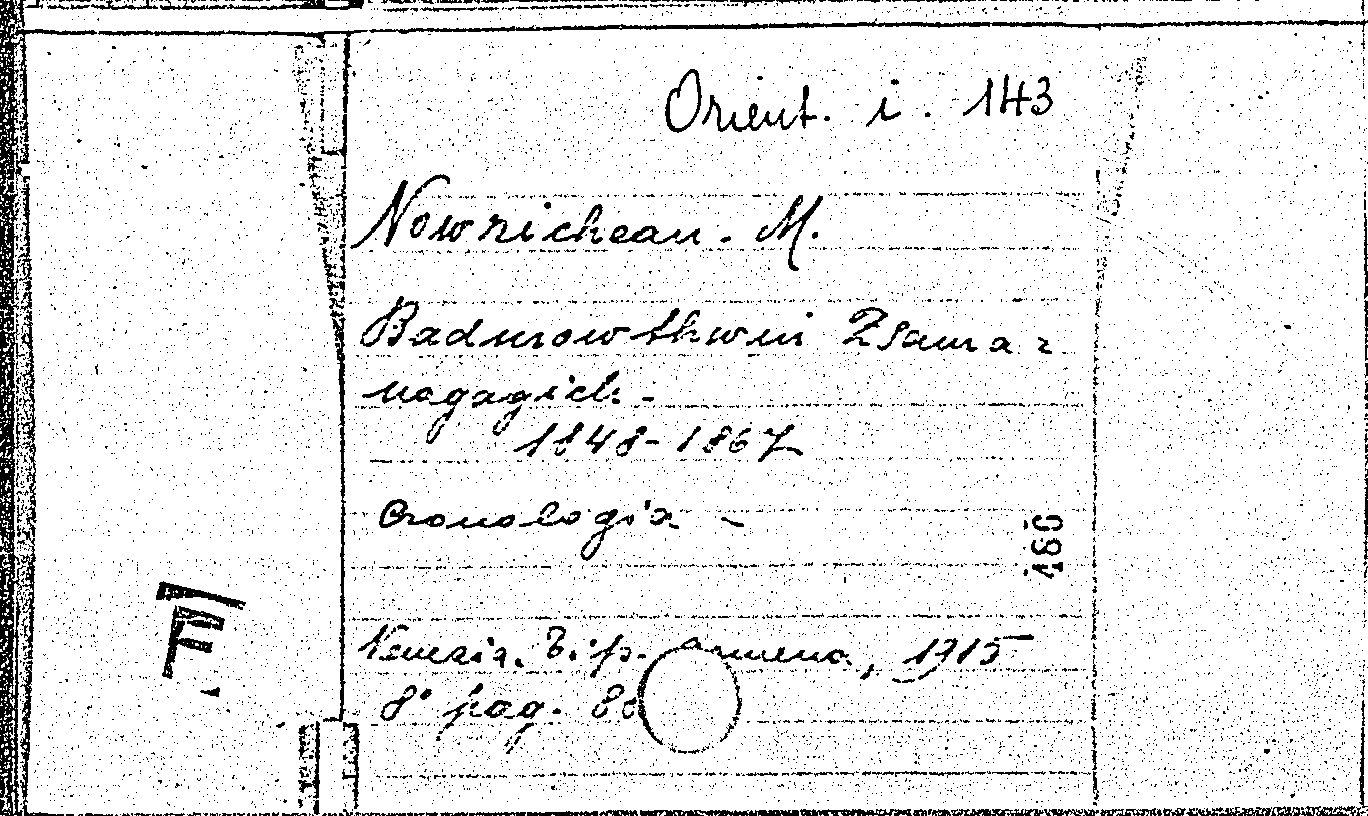 Orient. i. 143
Nowricheau. M.
Badmowthwin Zsama=
nagagich. -
1848-1867
Cronologia -
486
Venezia. Tip. armena, 1915
8° pag. 88
F